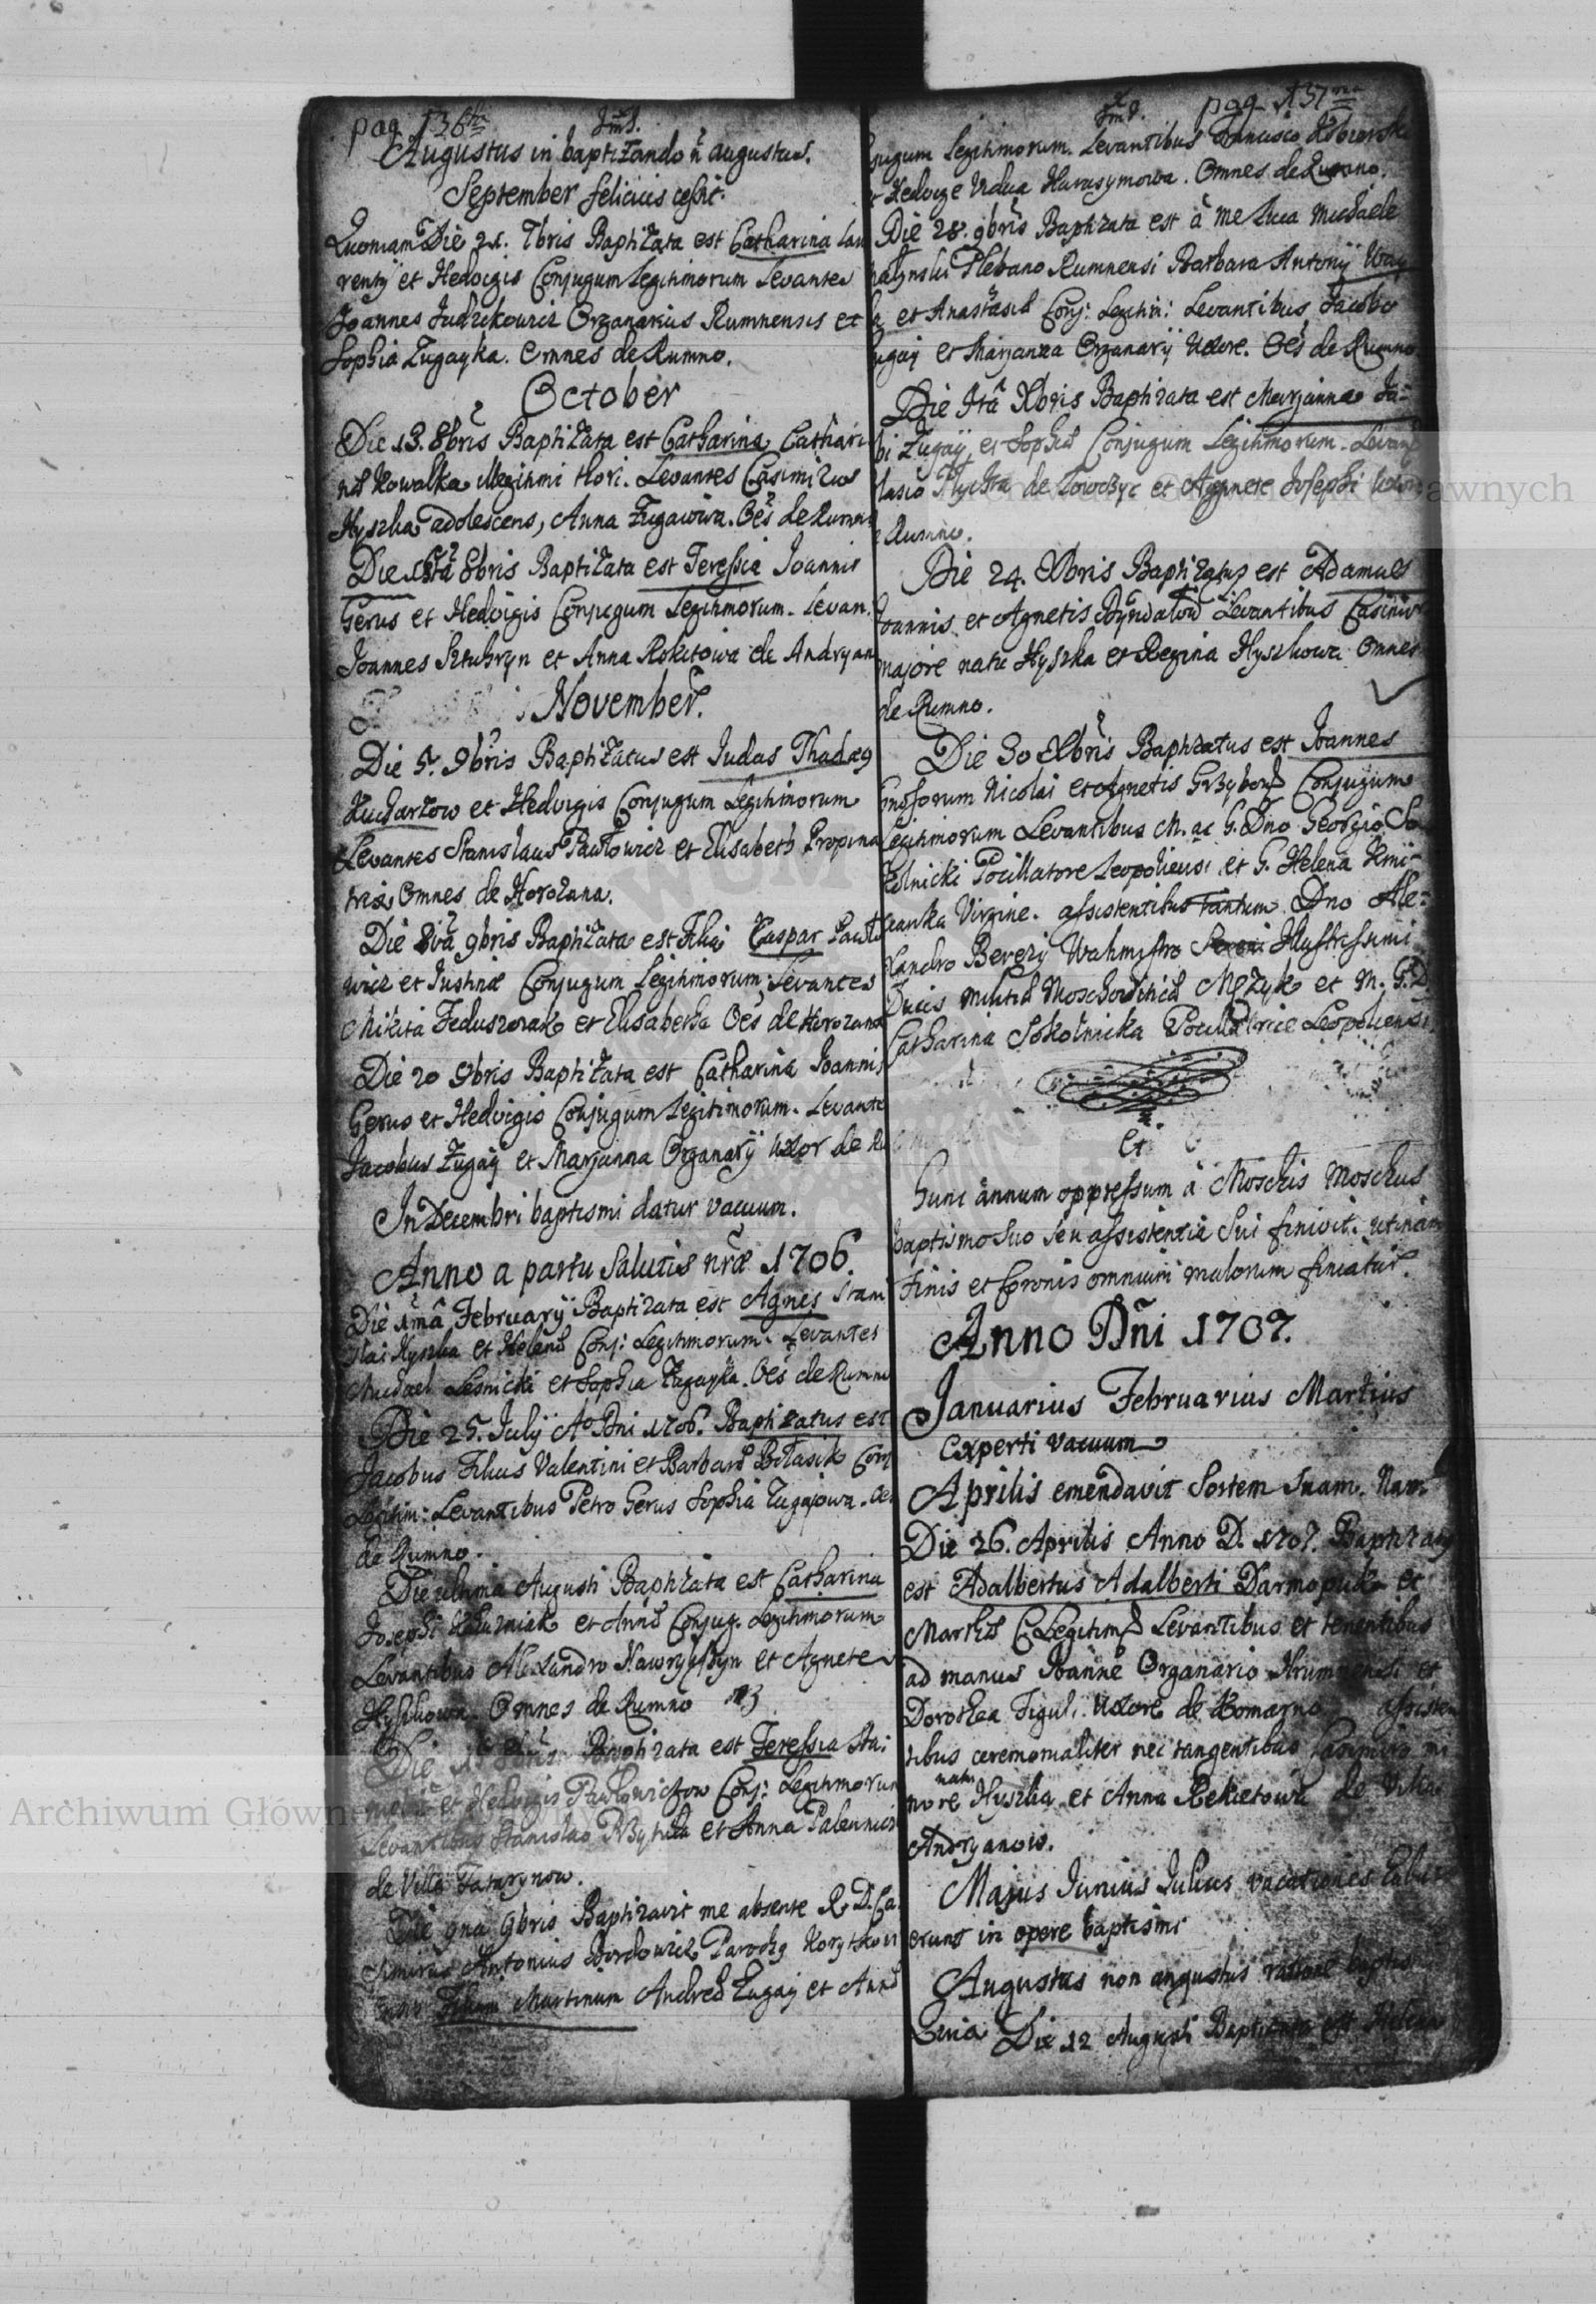 pag 136ta
Augustus in baptizando ñ augustus.
September felicius cessit.
Quoniam Die 21. 7bris Baptizata est Catharina Lau
rentÿ et Hedvigis Conjugum Legitimorum Levantes
Joannes Judzikowicz Organarius Rumnensis et
Sophia Zugayka. Omnes de Rumno.
October
Die 13. 8bris Baptizata est Catharina Cathari
næ Kowalka illegitimi thori. Levantes Casimirus
Hyszka adolescens, Anna Zugaiowa. Oēs de Rumn
Die 8bris Baptizata est Teressia Joannis
Gerus et Hedvigis Conjugum Legitimorum. Levan.
Joannes et Anna Rokitowa de Andryan
November.
Die 5. 9bris Baptizatus est Judas Thadæ9
Kucharzow et Hedvigis Conjugum Legitimorum
Levantes Stanislaus Pawlowicz et Elisabeth Propina
trix, Omnes de Horozana.
Die 8va 9bris Baptizata est Caspar Pawlo
wicz et Justinæ Conjugum Legitimorum: Levantes
Mikita Feduszczak et Elisabetha Oēs de Horozana
Die 20 9bris Baptizata est Catharina Joannis
Gerus et Hedvigis Conjugum Legitimorum. Levante
Jacobus Zugaÿ et Marjanna Organarÿ Uxor de Ru
In Decembri baptismi datur vacuum.
Anno a partu Salutis nræ 1706.
Die 1mâ Februarÿ Baptizata est Agnes Stani
slai Hyszka et Helenæ Conj: Legitimorum. Levantes
Michael Lesnicki et Sophia Zugayka. Oēs de Rumno
Die 25. Julÿ Ao Dni 1706. Baptizatus est
Jacobus Filius Valentini et Barbaræ Bilasik Conj
Legitim: Levantibus Petro Gerus Sophia Zugajowa. Oēs
de Rumno.
Die ultima Augusti Baptizata est Catharina
Josephi et Annæ Conjug. Legitimorum
Levantibus Alexandro et Agnete
Hyszkowa. Omnes de Rumno
Die Baptizata est Teressia
et Hedvigis Pawlowiczow Conj: Legitimorum
Levantibus Stanislao et Anna
de Villa Tatarynow.
Die 9na 9bris Baptizavit me absente R. D. Ca
simirus Antonius Parochg
Martinum Andreæ Zugaÿ et Annæ
pag. 137ma
jugum Legitimorum. Levantibus
et Hedvige Vidua Harasymowa. Omnes de Rumno.
Die 28. 9bris Baptizata est à me Luca Michaele
Plebano Rumnensi Barbara Antonÿ
et Anastasiæ Conj: Legitim: Levantibus Jacobo
ugaÿ et Marjanna Organarÿ Uxore. Oēs de Rumno
Die Xbris Baptizata est Marjanna Ja-
bi Zugaÿ et Sophiæ Conjugum Legitimorum. Levant
lasio de et Agnete Josephi
e Rumno.
Die 24. Xbris Baptizatus est Adamus
Joannis et Agnetis Levantibus Casimiro
majore natu Hyszka et Regina Hyszkowa Omnes
de Rumno.
Die 30 Xbris Baptizatus est Joannes
Nicolai et Agnetis Conjugum
Legitimorum Levantibus M. ac G. Dno Georgio So
kolnicki Pocillatore Leopoliensi et G. Helena
Virgine. assistentibus Tantum Dno Ale-
xandro Berezÿ Wahmistro Illustrissimi
Ducis Militiæ Moschoviticæ et M. G. D.
Catharina Sokolnicka Pocillatrice Leopoliensi.
Et
Hunc annum oppressum à Moschis Moschus
baptismo suo seu assistentiæ sui finivit. utinam
Finis et Coronis omnium malorum finiatur.
Anno Dñi 1707.
Januarius Februarius Martius
Experti vacuum
Aprilis emendavit Sortem Suam. Nam
Die 26. Aprilis Anno D. 1707. Baptizatg
est Adalbertus Adalberti Darmopuk et
Marthæ C. Legitimo Levantibus et tenentibus
ad manus Joanne Organario et
Dorothea Figuli Uxore de Komarno assisten
tibus ceremonialiter nec tangentibus Casimiro mi
nore natu Hyszka et Anna Rekietowa de Villa
Andryanow.
Majus Junius Julius vacationes habu
erunt in opere baptismi
Augustus non angustus ratione baptis
Die 12 Augusti Baptizata est Helena